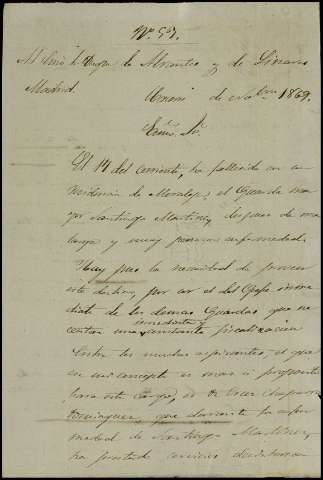 Nº 59.
Al Exmo Sr. Duque de Abrantes y de Linares
Madrid.
de 1869.
Exmo. Sr.
El 14 del corriente, ha fallecido en su
residencia de Moraleja, el Guarda ma-
yor Santiago Martinez, despues de una
larga y muy penosa enfermedad.
Hay pues la necesidad de proveer
este destino, por ser el del Gefe inme-
diato de los demas Guardas que ne-
cesitan una inmediata y constante fiscalizacion
Entre los muchos aspirantes, el que
en mi concepto es mas a proposito
para este cargo, es
Dominguez, que durante la enfer-
medad de Santiago Martinez,
ha prestado servicios